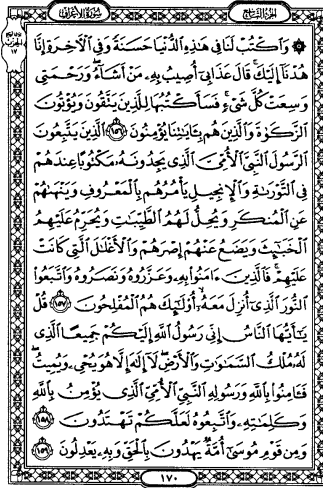 الجزء التاسع
سورة الأعراف
۞ وَٱكْتُبْ لَنَا فِى هَٰذِهِ ٱلدُّنْيَا حَسَنَةً وَفِى ٱلْءَاخِرَةِ إِنَّا
هُدْنَآ إِلَيْكَ ۚ قَالَ عَذَابِىٓ أُصِيبُ بِهِۦ مَنْ أَشَآءُ ۖ وَرَحْمَتِى
وَسِعَتْ كُلَّ شَىْءٍ ۚ فَسَأَكْتُبُهَا لِلَّذِينَ يَتَّقُونَ وَيُؤْتُونَ
ٱلزَّكَوٰةَ وَٱلَّذِينَ هُم بِـَٔايَٰتِنَا يُؤْمِنُونَ ١٥٦ ٱلَّذِينَ يَتَّبِعُونَ
ٱلرَّسُولَ ٱلنَّبِىَّ ٱلْأُمِّىَّ ٱلَّذِى يَجِدُونَهُۥ مَكْتُوبًا عِندَهُمْ
فِى ٱلتَّوْرَىٰةِ وَٱلْإِنجِيلِ يَأْمُرُهُم بِٱلْمَعْرُوفِ وَيَنْهَىٰهُمْ
عَنِ ٱلْمُنكَرِ وَيُحِلُّ لَهُمُ ٱلطَّيِّبَٰتِ وَيُحَرِّمُ عَلَيْهِمُ
ٱلْخَبَٰٓئِثَ وَيَضَعُ عَنْهُمْ إِصْرَهُمْ وَٱلْأَغْلَٰلَ ٱلَّتِى كَانَتْ
عَلَيْهِمْ ۚ فَٱلَّذِينَ ءَامَنُوا۟ بِهِۦ وَعَزَّرُوهُ وَنَصَرُوهُ وَٱتَّبَعُوا۟
ٱلنُّورَ ٱلَّذِىٓ أُنزِلَ مَعَهُۥٓ ۙ أُو۟لَٰٓئِكَ هُمُ ٱلْمُفْلِحُونَ ١٥٧ قُلْ
يَٰٓأَيُّهَا ٱلنَّاسُ إِنِّى رَسُولُ ٱللَّهِ إِلَيْكُمْ جَمِيعًا ٱلَّذِى
لَهُۥ مُلْكُ ٱلسَّمَٰوَٰتِ وَٱلْأَرْضِ ۖ لَآ إِلَٰهَ إِلَّا هُوَ يُحْىِۦ وَيُمِيتُ ۖ
فَـَٔامِنُوا۟ بِٱللَّهِ وَرَسُولِهِ ٱلنَّبِىِّ ٱلْأُمِّىِّ ٱلَّذِى يُؤْمِنُ بِٱللَّهِ
وَكَلِمَٰتِهِۦ وَٱتَّبِعُوهُ لَعَلَّكُمْ تَهْتَدُونَ ١٥٨
وَمِن قَوْمِ مُوسَىٰٓ أُمَّةٌ يَهْدُونَ بِٱلْحَقِّ وَبِهِۦ يَعْدِلُونَ ١٥٩
١٧٠